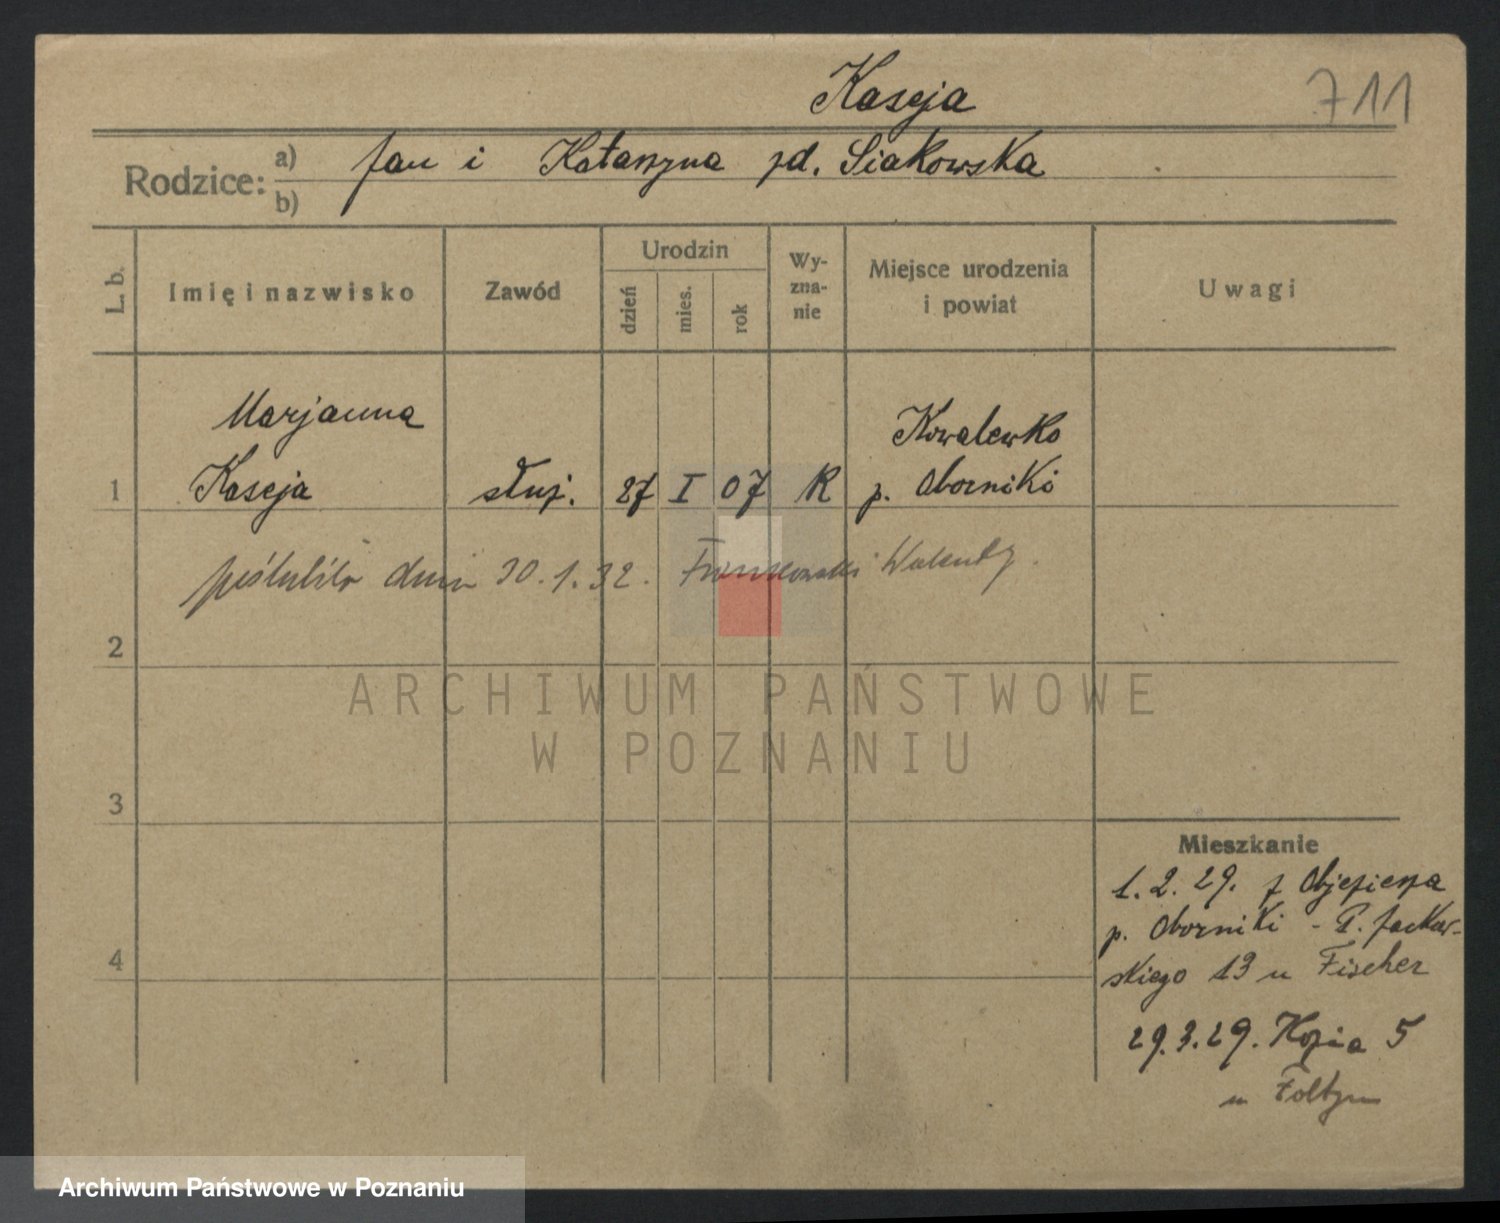 Kaseja
711
Rodzice: a) Jan i Katarzyna zd. Siakowska
b)
L. b. Imię i nazwisko Zawód Urodzin dzień mies. rok Wyznanie Miejsce urodzenia i powiat Uwagi
Marjanna Kowalewko
1 Kaseja służ. 27 I 07 R p. Oborniki
poślubiła dnia 30.1.32. Walenty
2
ARCHIWUM PAŃSTWOWE
W POZNANIU
3
Mieszkanie
1.2.29. z Objezierza
4 p. Oborniki - P. Jackow-
skiego 13 u Fischer
29.3.29. Kozia 5
u Foltyn
Archiwum Państwowe w Poznaniu